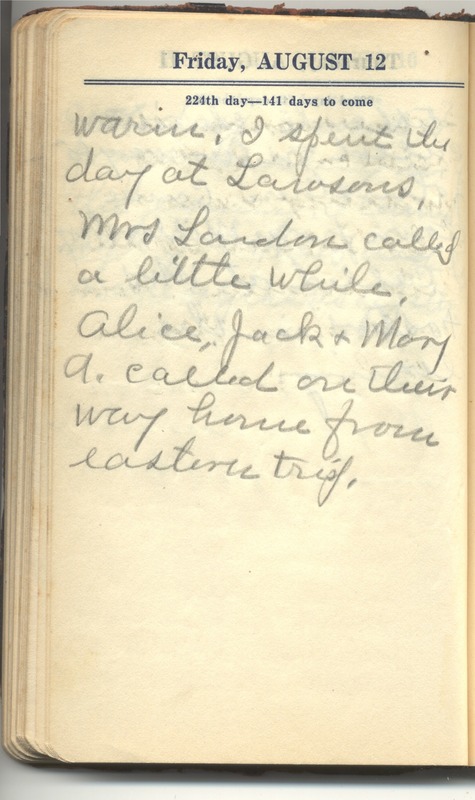 Friday, AUGUST 12
224th day—141 days to come
warm. I spent the
day at Lawsons.
Mrs Landon called
a little while.
Alice, Jack & Mary
A. called on their
way home from
eastern trip.